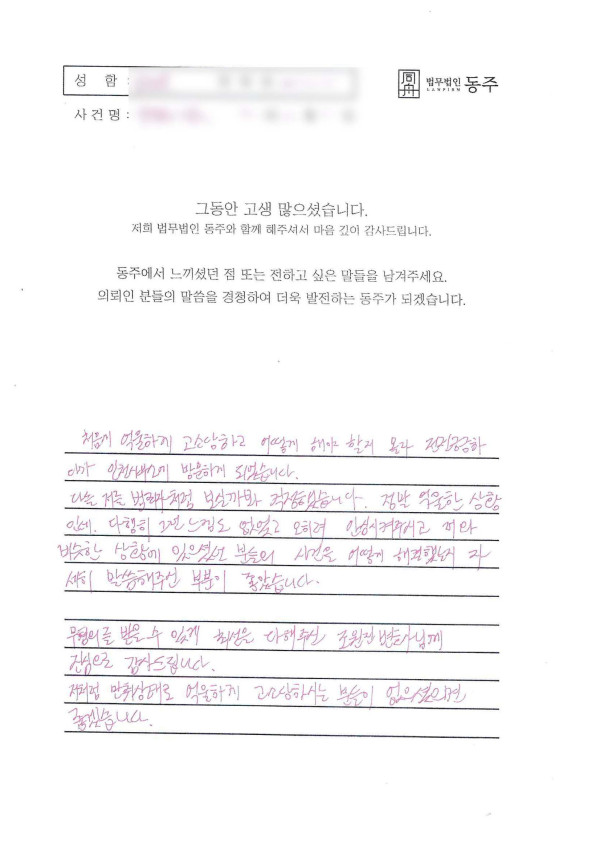 성 함 :
법무법인 동주
LAWFIRM
사건명 :
그동안 고생 많으셨습니다.
저희 법무법인 동주와 함께 해주셔서 마음 깊이 감사드립니다.
동주에서 느끼셨던 점 또는 전하고 싶은 말들을 남겨주세요.
의뢰인 분들의 말씀을 경청하여 더욱 발전하는 동주가 되겠습니다.
처음에 억울하게 고소당하고 어떻게 해야 할지 몰라 전전긍긍하
다가 인천사무소에 방문하게 되었습니다.
다들 저를 범죄자처럼 보실까봐 걱정했습니다. 정말 억울한 상황
인데. 다행히 그런 느낌도 없었고 오히려 안심시켜주시고 저와
비슷한 상황에 있으셨던 분들의 사건을 어떻게 해결했는지 자
세히 말씀해주신 부분이 좋았습니다.
무혐의를 받을 수 있게 최선을 다해주신 조원진변호사님께
진심으로 감사드립니다.
저처럼 만취상태로 억울하게 고소당하시는 분들이 없으셨으면
좋겠습니다.